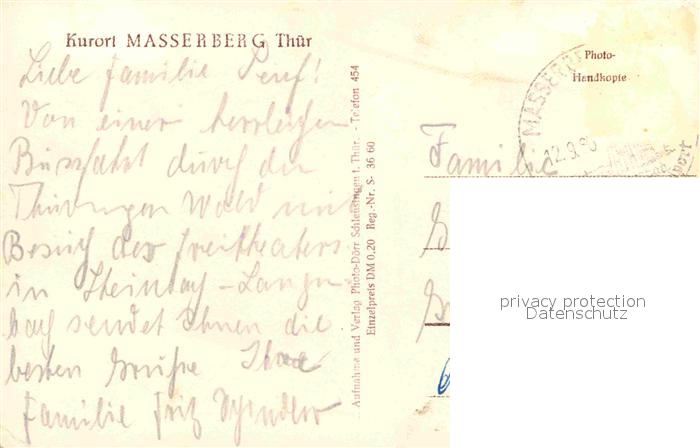 Kurort MASSERBERG Thür
Liebe Familie
Von einer herrlichen
Busfahrt durch den
Thüringer Wald mit
Besuch des Freitheaters
in Steinbach-Langen
bach sendet Ihnen die
besten Grüße Ihre
Familie Fritz Schindler
Aufnahme und Verlag Photo-Dörr Schleusingen i. Thür. - Telefon 454
Einzelpreis DM 0,20 Reg.-Nr. S- 36 60
Photo-
Handkopie
MASSERBE
12.9.60
Familie
privacy protection
Datenschutz